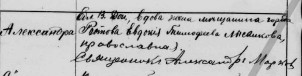 Александра
вдова жена мещанина города
Ростова Евдокія Тимофеева
православная,
Священникъ Александръ Марков